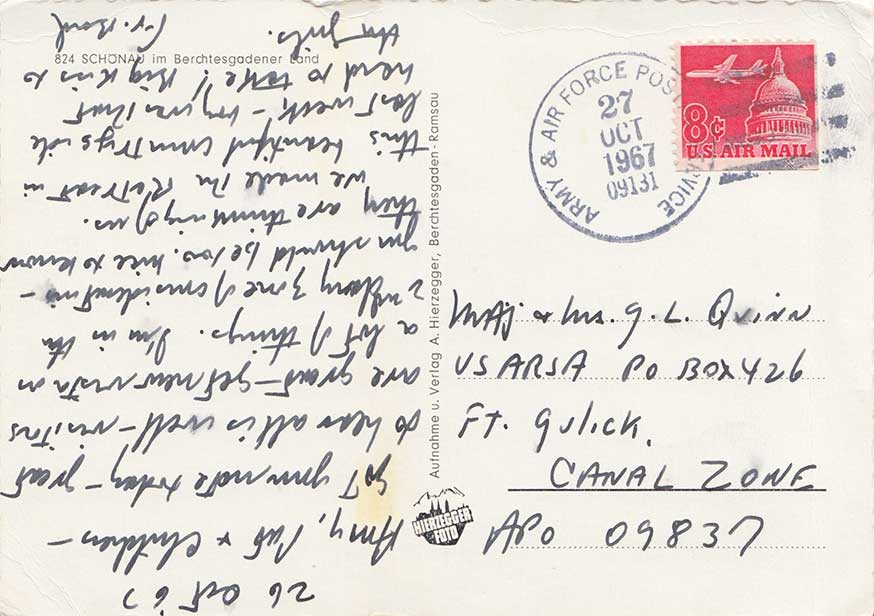 824 SCHÖNAU im Berchtesgadener Land
Aufnahme u. Verlag A. Hierzegger, Berchtesgaden-Ramsau
HIERZEGGER
FOTO
ARMY & AIR FORCE POSTAL SERVICE
27
OCT
1967
09131
8¢
U.S. AIR MAIL
Maj & Mrs. G. L. Quinn
USARSA PO BOX 426
Ft. Gulick,
CANAL ZONE
APO 09837
26 Oct 67
Pat & Children –
Got your note today – great
to hear all is well – visitors
are great – get new vista on
a lot of things. I'm in the
zone of consideration –
you should be too. Nice to know
they are thinking of us.
We made the Retreat in
this beautiful countryside
last week – boy was that
hard to take! Big kiss to
the girls.
Fr.